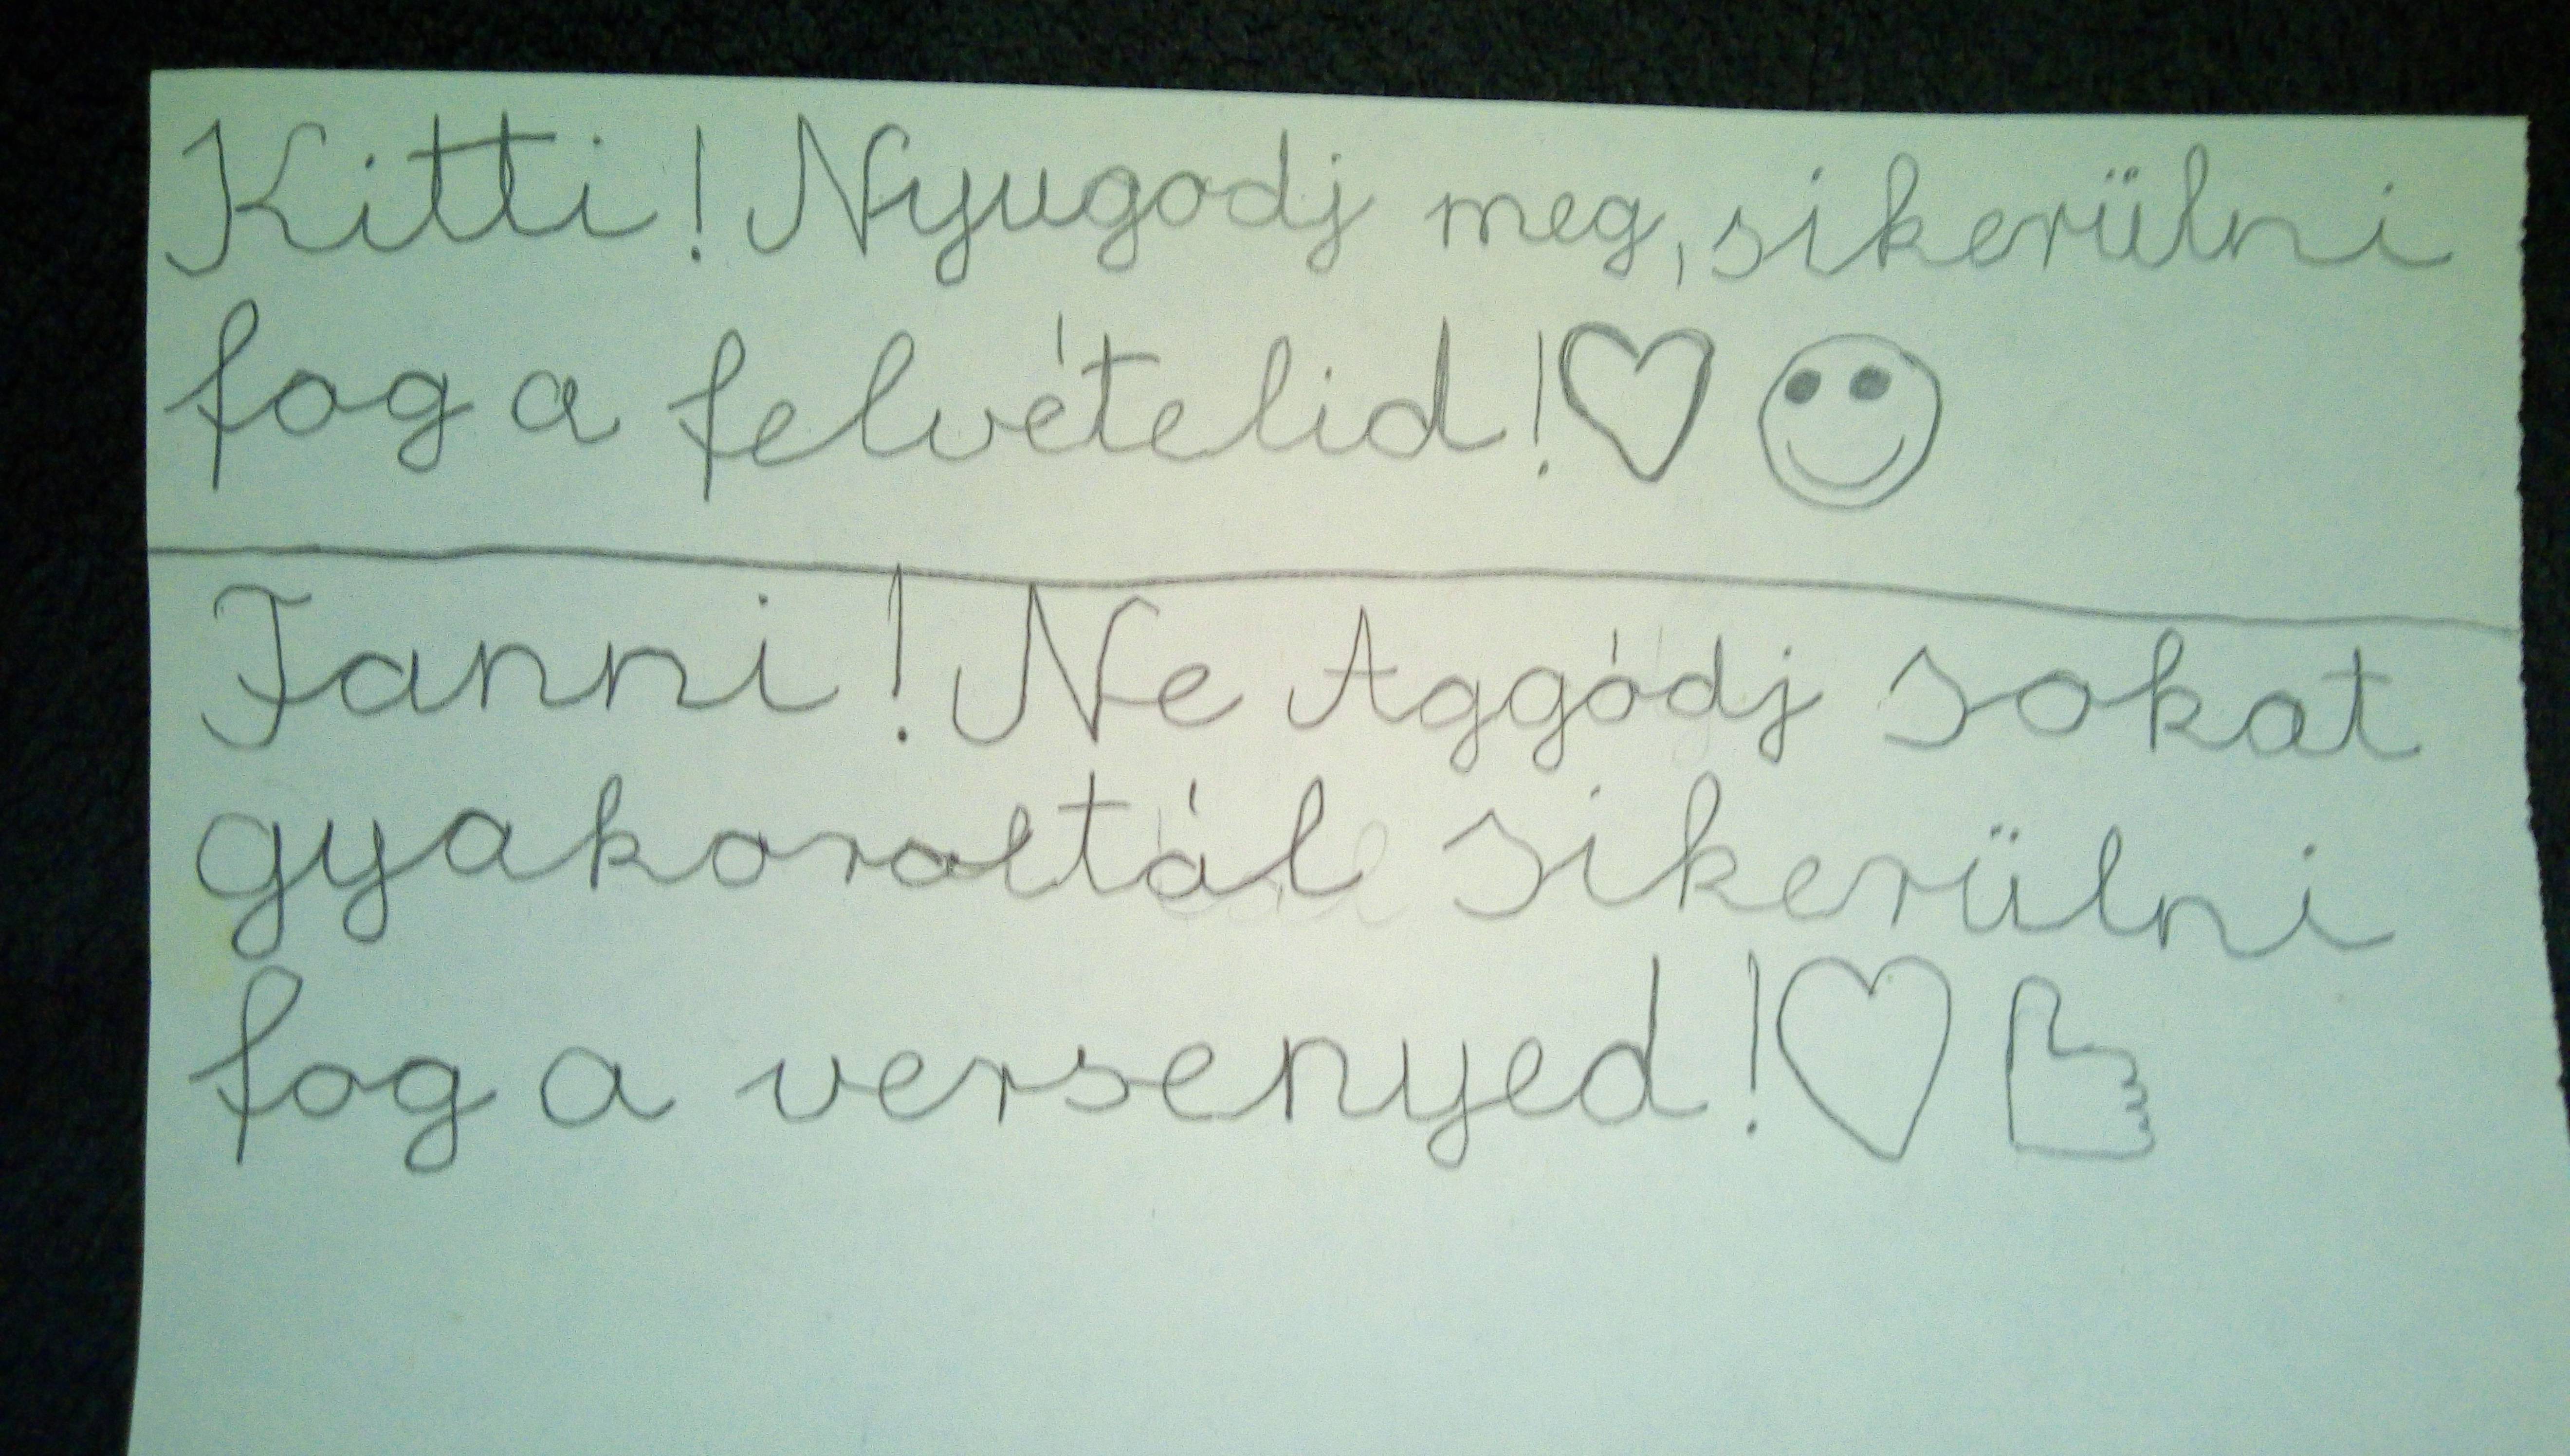 Kitti! Nyugodj meg, sikerülni
fog a felvételid!
Fanni! Ne Aggódj sokat
gyakoroltál sikerülni
fog a versenyed!